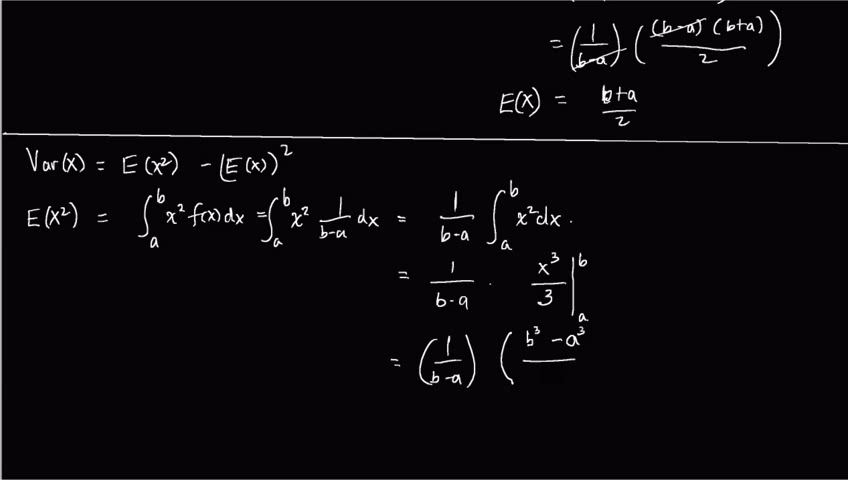 = (1/(b-a)) ((b-a)(b+a)/2)
E(X) = (b+a)/2
Var(X) = E(X²) - (E(X))²
E(X²) = ∫_a^b x² f(x) dx = ∫_a^b x² 1/(b-a) dx = 1/(b-a) ∫_a^b x² dx.
= 1/(b-a) · x³/3 |_a^b
= (1/(b-a)) (b³ - a³